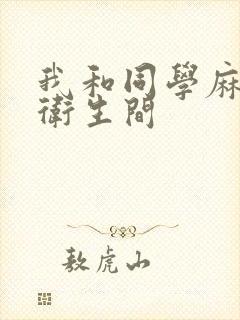 我和同學麻
衛生間
敖虎山